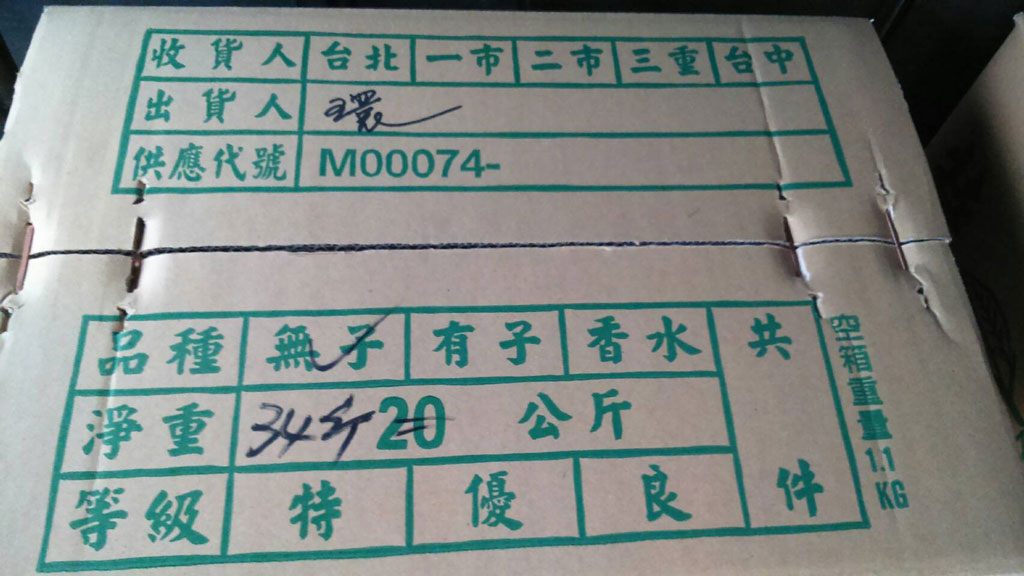 收貨人 台北 一市 二市 三重 台中
出貨人 環
供應代號 M00074-
品種 無子 有子 香水 共
淨重 34斤 20 公斤
等級 特 優 良 件
空箱重量 1.1 KG